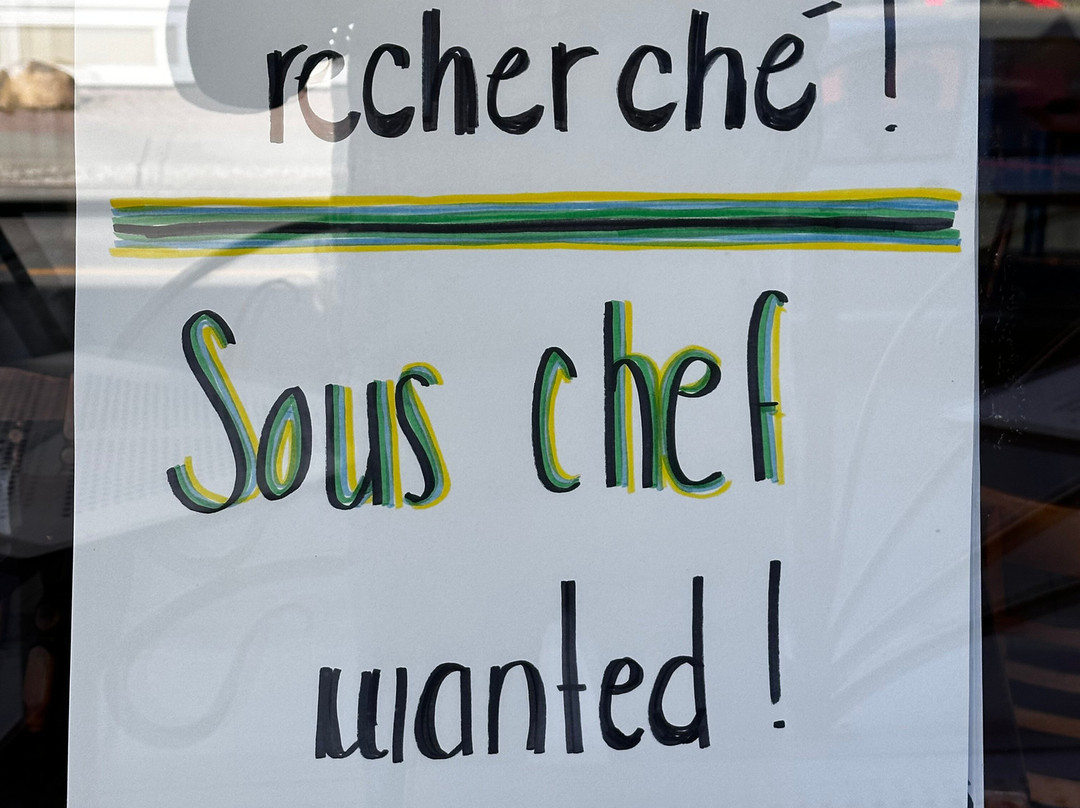 recherché !
Sous chef
wanted !